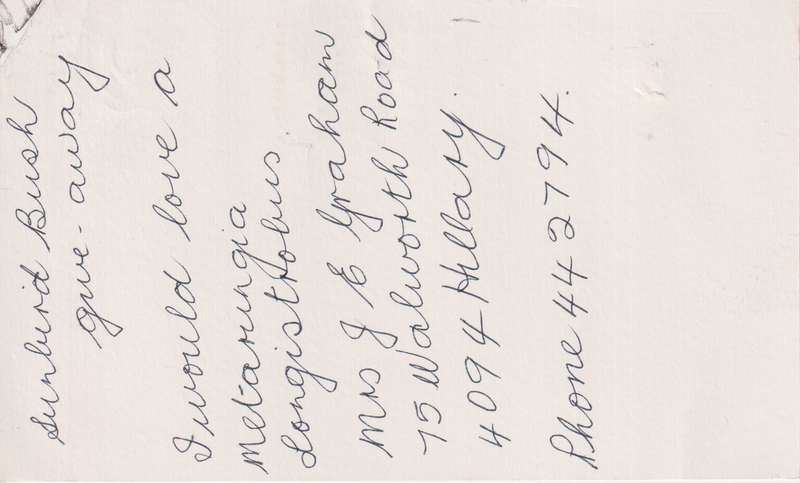 Sunbird Bush
give-away
I would love a
Metarungia
Longistrobus
Mrs J E Graham
75 Walworth Road
4094 Hillary.
Phone 442794.